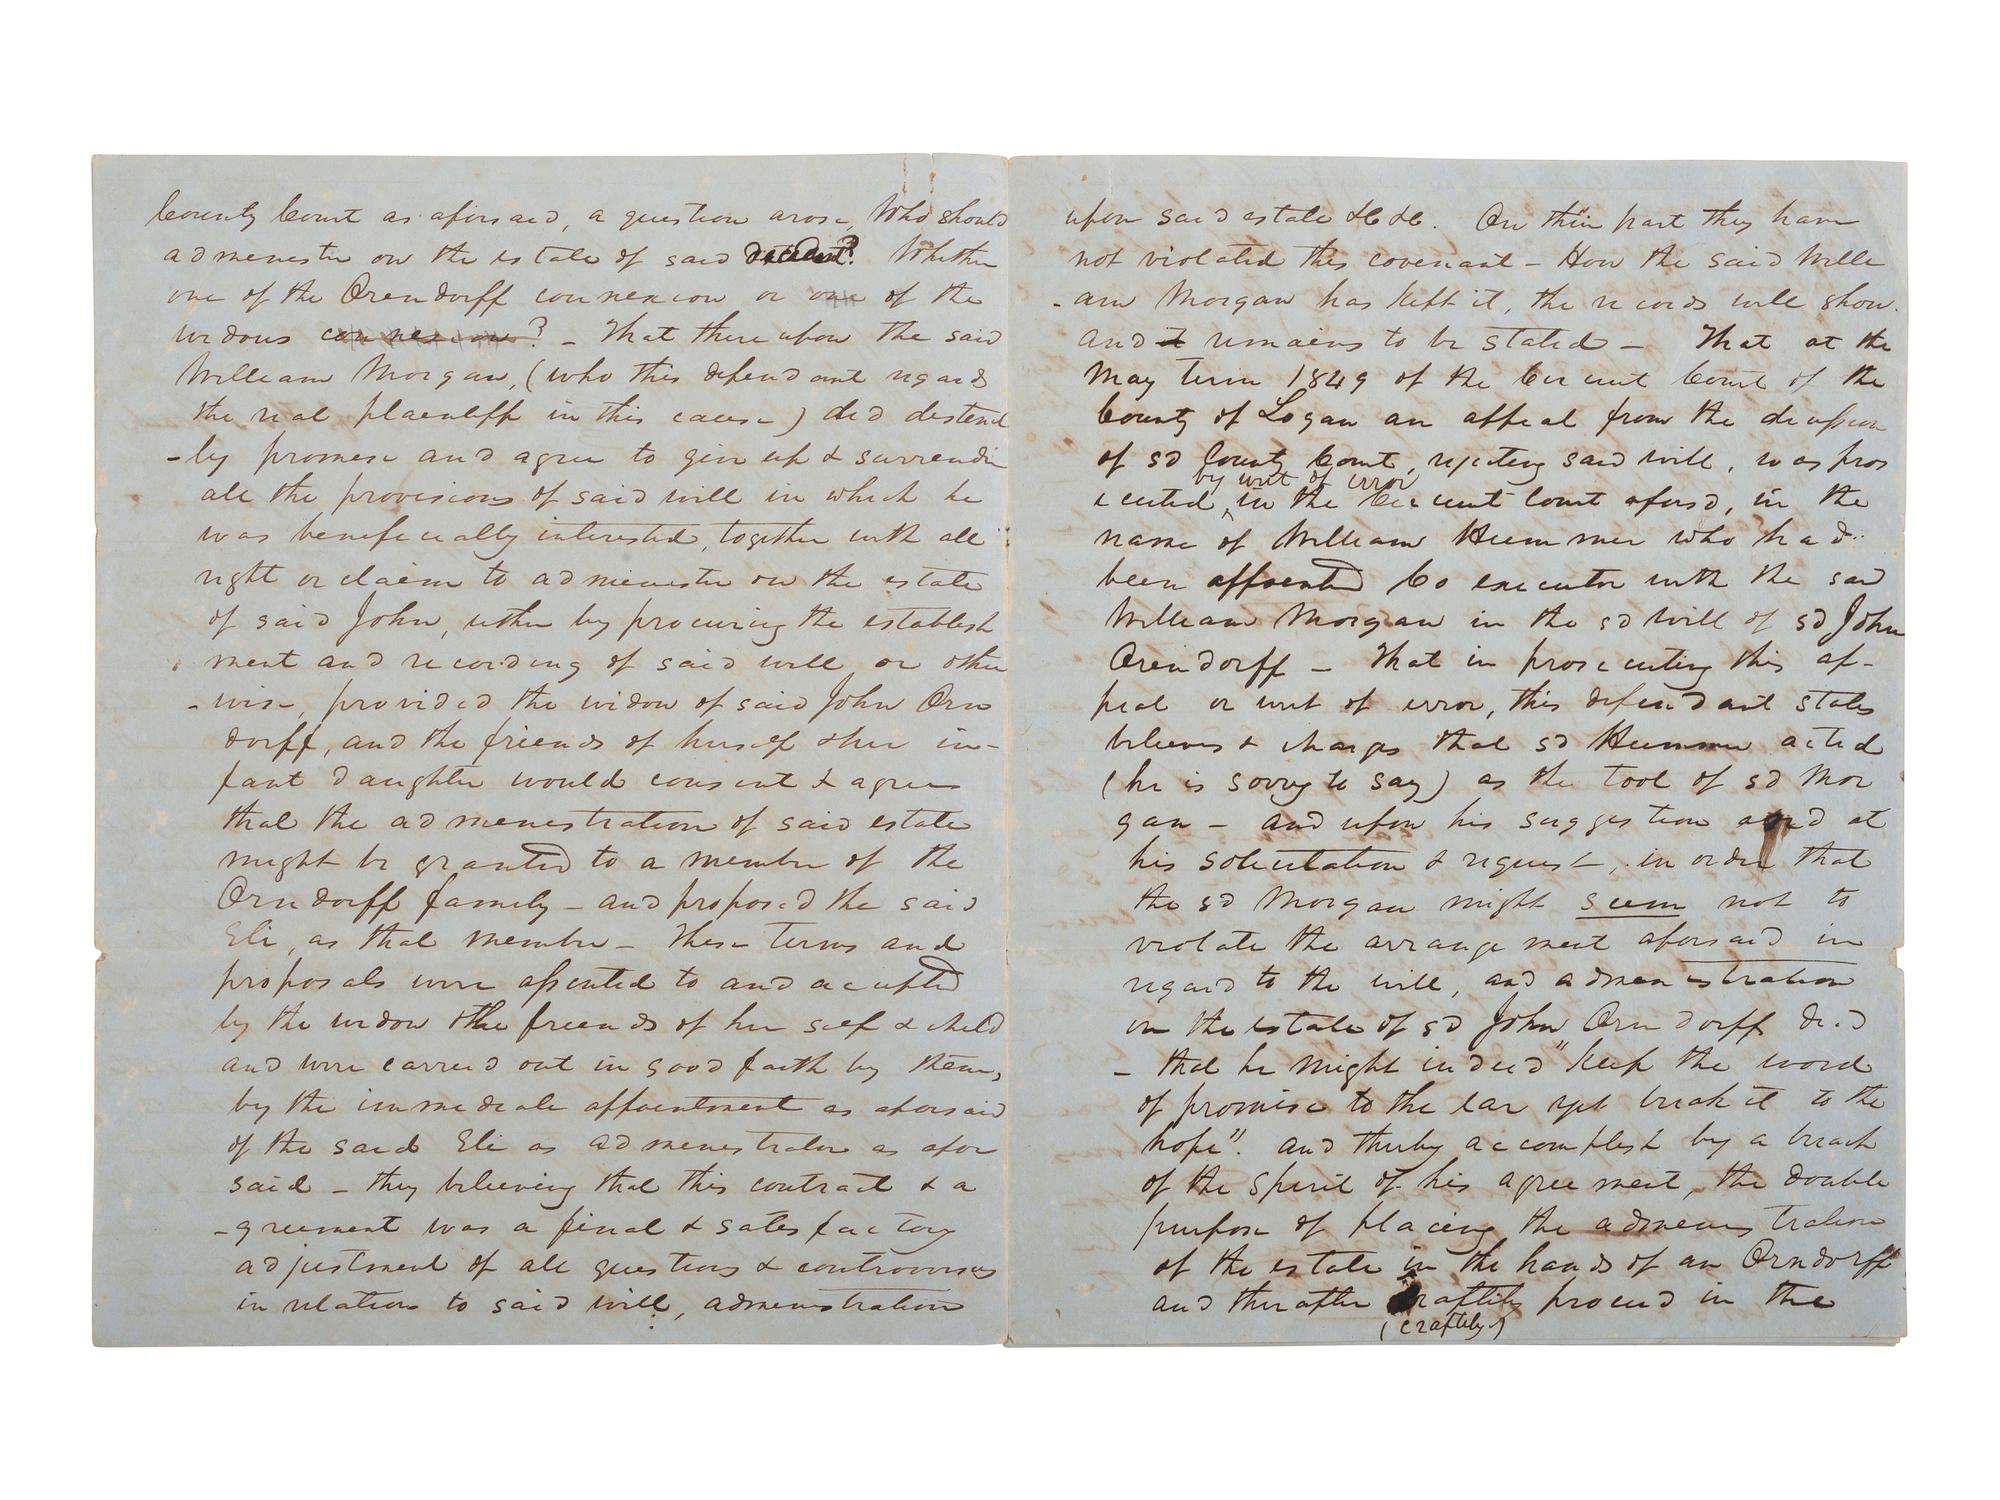 County Court as aforsaid, a question arose, Who should
admenester on the estate of said decedent? Whether
one of the Orendorff connexion or one of the
widows connexion? - That thereupon the said
William Morgan, (who this defendant regards
the real plaentiff in this cause) did destend
-ly promise and agree to give up & surrender
all the provisions of said will in which he
was beneficially interested, together with all
right or claim to admenester on the estate
of said John, either by procuring the establish
ment and recording of said will or other
-wise, provided the widow of said John Orn
dorff, and the friends of herself & her in-
fant daughter would consent & agree
that the admenestration of said estate
might be granted to a member of the
Orndorff family - and proposed the said
Eli, as that member - These terms and
proposals were assented to and accepted
by the widow & the friends of her self & child
and were carried out in good faith by them,
by the immediate appointment as aforsaid
of the said Eli as admenestrator as afor
said - they believing that this contract & a
-greement was a final & satesfactory
adjustment of all questions & controversies
in relation to said will, admenestration
upon said estate &C &C. On their part they have
not violated this covenant - How the said Wille
-am Morgan has kept it, the records will show.
and it remains to be stated - That at the
May term 1849 of the Circuit Court of the
County of Logan an appeal from the decission
of sd County Court, rejecting said will, was pros
by writ of error
ecuted, in the Circuit Court aforsd, in the
name of William Hummer who had
been appointed Co executor with the said
William Morgan in the sd will of sd John
Orendorff - That in prosecuting this ap-
peal or writ of error, this defendant states
believes & charges that sd Hummer acted
(he is sorry to say) as the tool of sd Mor
gan - and upon his suggestion and at
his solicitation & request, in order that
the sd Morgan might seem not to
violate the arrangement aforsaid in
regard to the will, and admenestration
on the estate of sd John Orndorff decd
- that he might indeed "keep the word
of promise to the ear yet break it to the
hope". and thereby accomplish by a breach
of the spirit of his agreement, the double
purpose of placing the admenestration
of the estate in the hands of an Orndorff
and therafter craftily proceed in the
(craftily)